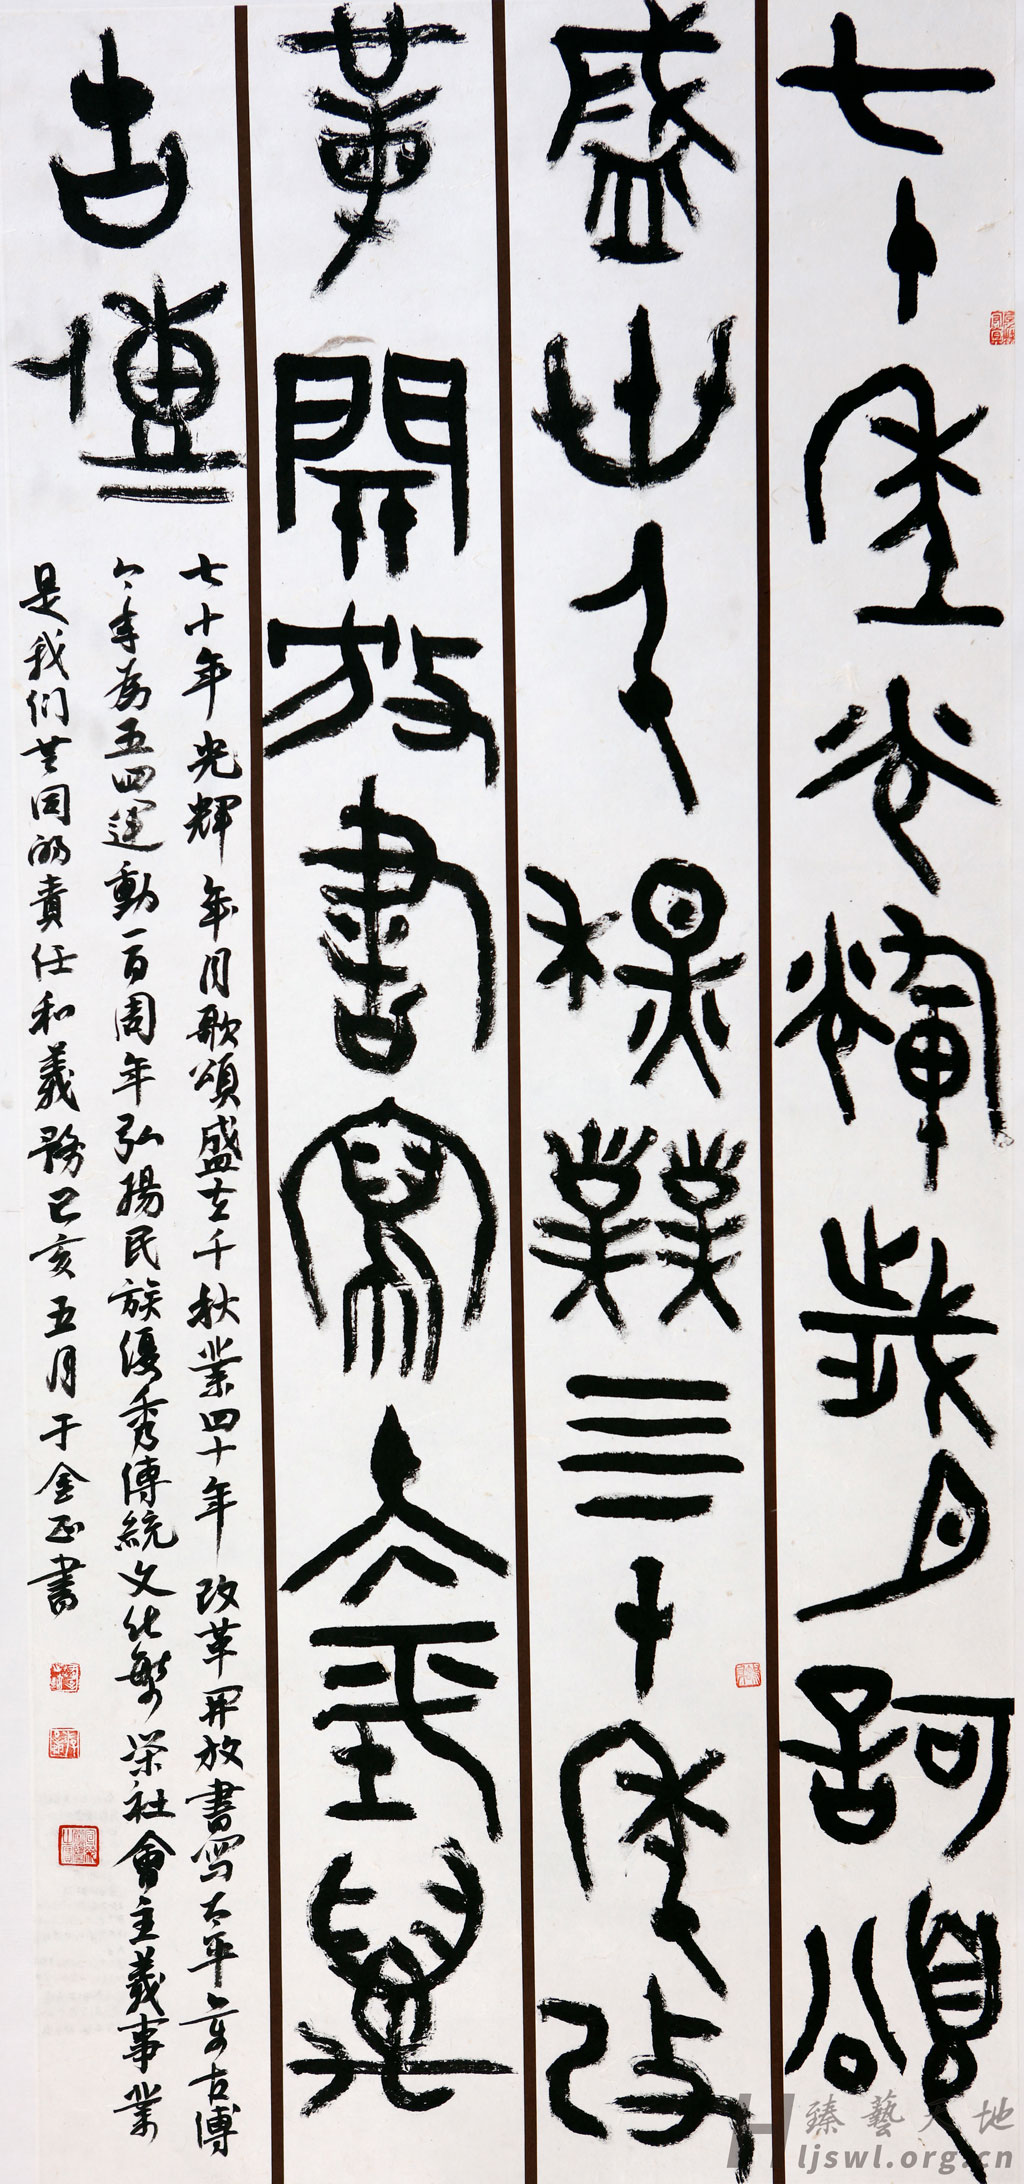 七十年光輝歲月歌頌
盛世千秋業四十年改
革開放書寫太平萬
古傳
七十年光輝歲月歌頌盛世千秋業四十年改革開放書寫太平万古傳
今年為五四運動一百周年弘揚民族優秀傳統文化繁榮社會主義事業
是我们共同的責任和義務己亥五月于金正書
臻藝天地
ljswl.org.cn